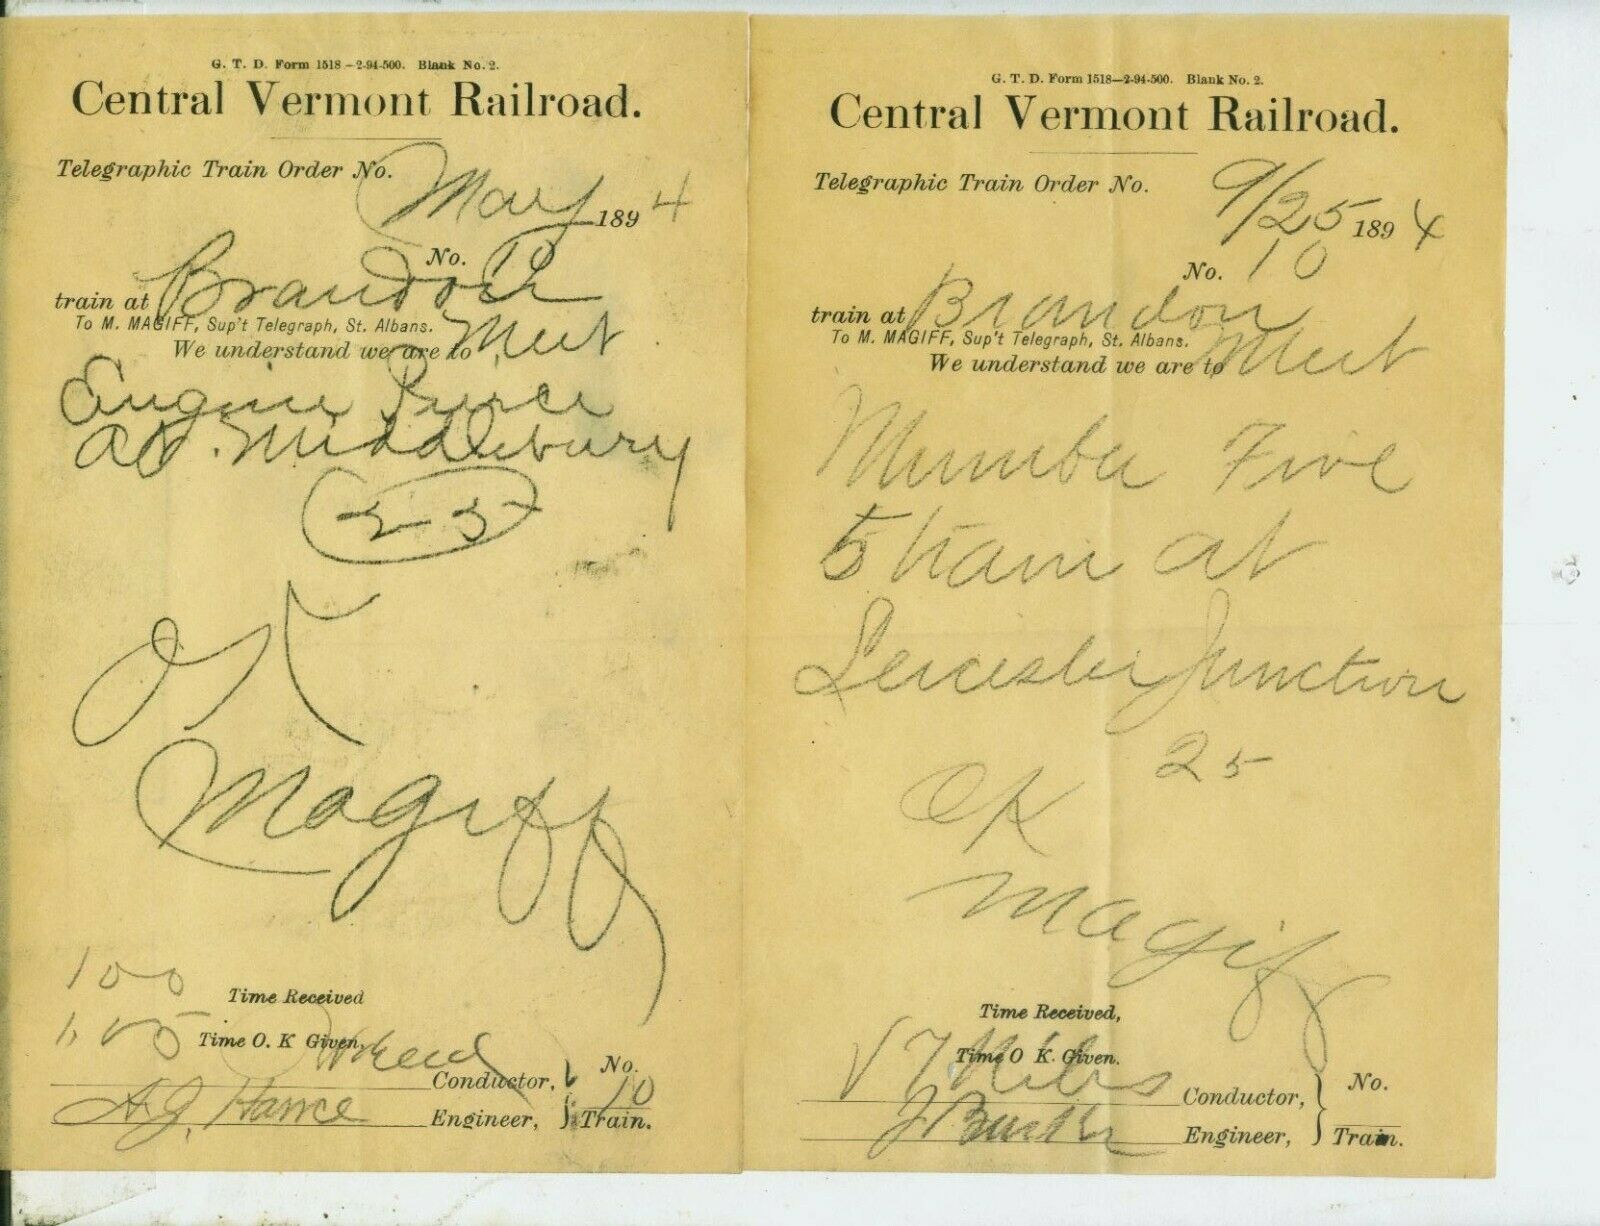 G. T. D. Form 1518-2-94-500. Blank No. 2.
Central Vermont Railroad.
Telegraphic Train Order No.
May 1894
No. 12
train at Brandon
To M. MAGIFF, Sup't Telegraph, St. Albans.
We understand we are to Meet
Engine Pierce
at. Middlebury
25
OK
Magiff
100
Time Received
1.05 Time O. K Given,
Conductor,
A.J. Hance Engineer,
No.
10
Train.
G. T. D. Form 1518-2-94-500. Blank No. 2.
Central Vermont Railroad.
Telegraphic Train Order No.
9/25 1894
No. 10
train at Brandon
To M. MAGIFF, Sup't Telegraph, St. Albans.
We understand we are to Meet
Number Five
5 train at
Leicester Junction
25
OK
Magiff
Time Received,
Time O K. Given.
Conductor,
Engineer,
No.
Train.